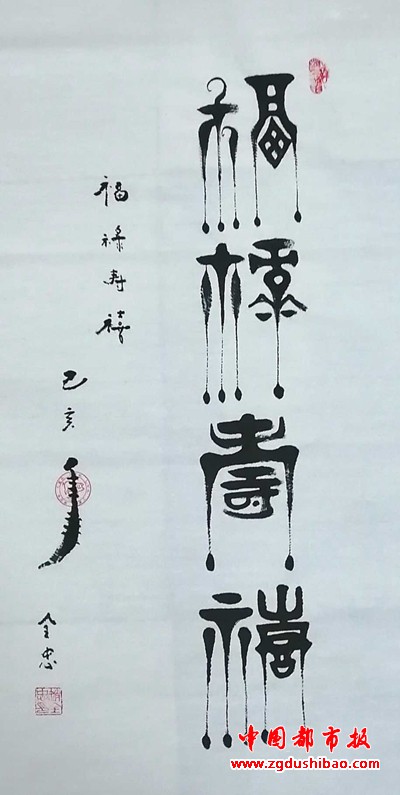 福禄寿禧
福禄寿禧
己亥年
全忠
中国都市报
www.zgdushibao.com